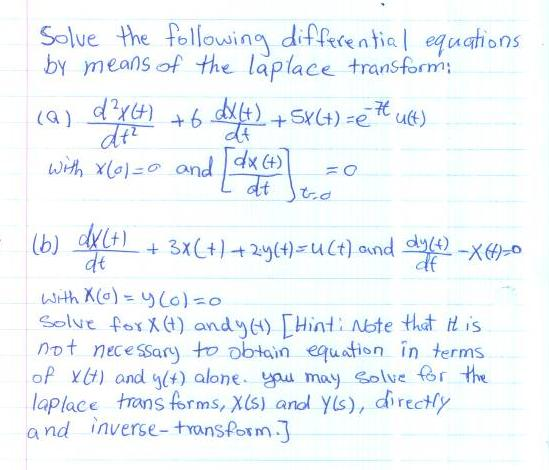 Solve the following differential equations
by means of the laplace transform:
(a) d²x(t)/dt² + 6 dx(t)/dt + 5x(t) = e^-7t u(t)
with x(0)=0 and [dx(t)/dt]t=0 = 0
(b) dx(t)/dt + 3x(t) + 2y(t) = u(t) and dy(t)/dt - x(t)=0
with x(0) = y(0)=0
Solve for x(t) and y(t) [Hint: Note that it is
not necessary to obtain equation in terms
of x(t) and y(t) alone. you may solve for the
laplace transforms, X(s) and Y(s), directly
and inverse-transform.]